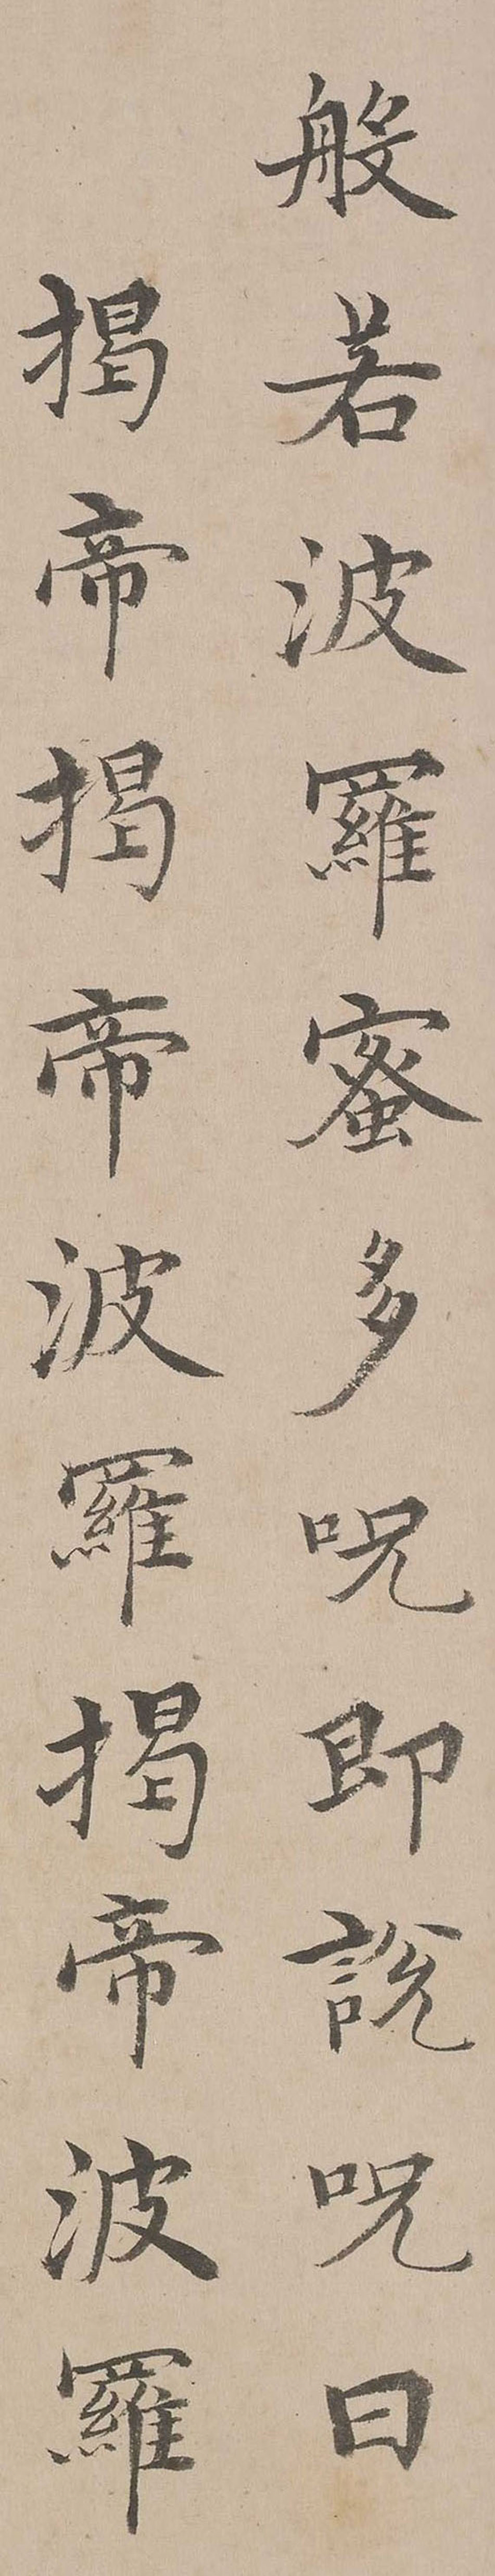 般若波羅蜜多呪即說呪曰
揭帝揭帝波羅揭帝波羅